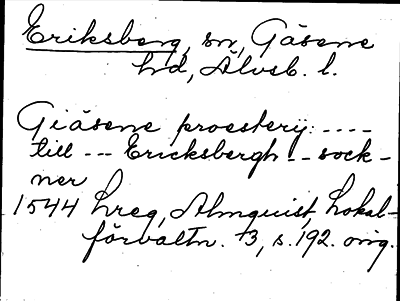 Eriksberg, sn, Gäsene
hd, Älvsb. l.
Giäsene proestery: ----
till --- Ericksbergh -- sock-
ner
1544 hreg, Almquist, Lokal-
förvaltn. 3, s. 192. orig.